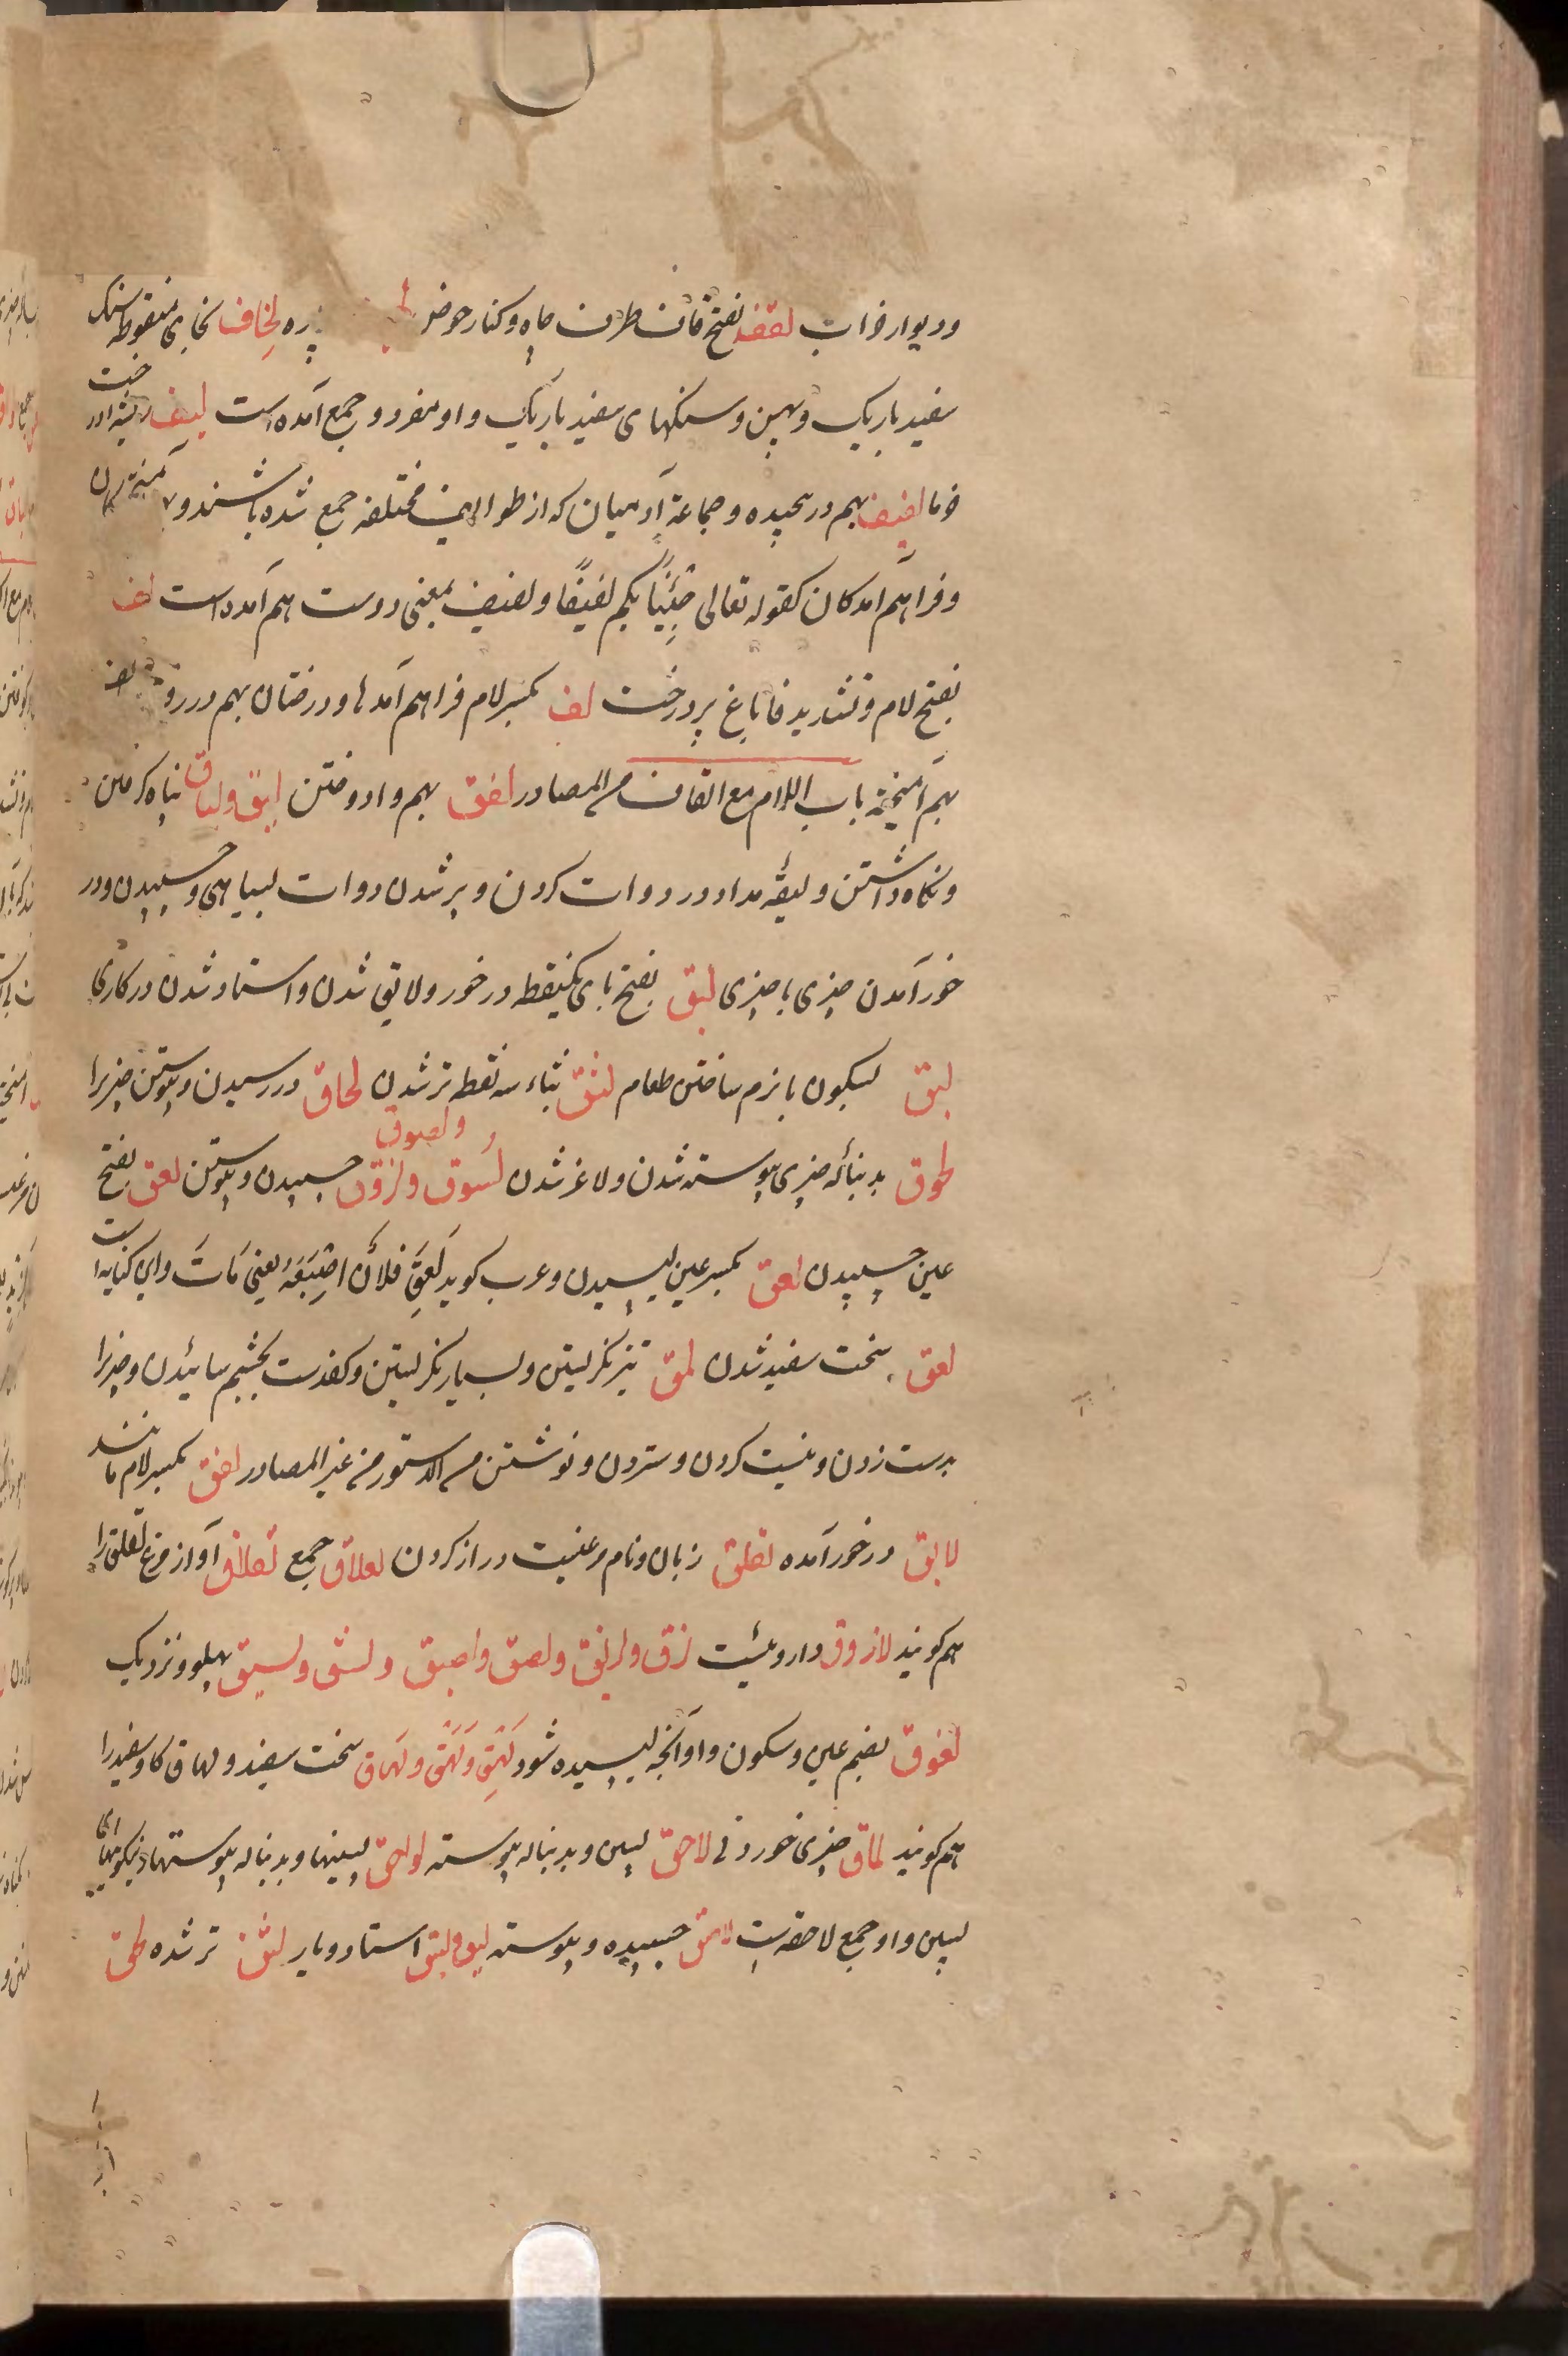 ودیوار خراب لقف بفتح قاف طرف چاه و کنار حوض پره لخاف بخای منقوطه سنک
سفید باریک و پهن و سنکهای سفید باریک و او مفرد و جمع آمده است لیف ریشه درخت
خرما لفیف بهم در پیچیده و جماعة آدمیان که از طوایف مختلفه جمع شده باشند و آمیخته
وفراهم آمدکان کقوله تعالی جئنا بکم لفیفا و لفیف بمعنی دوست هم آمده است لف
بفتح لام و تشدید فا باغ پر درخت لف بکسر لام فراهم آمدها و درختان بهم در
بهم آمیخته باب اللام مع القاف من المصادر لفق بهم وا دوختن لیق ولیاق پناه کرفتن
ونکاه داشتن و لیقه مداد در دوات کردن و پر شدن دوات بسیاهی و چسپیدن ودر
خور آمدن چیزی با چیزی لبق بفتح بای یکنقطه در خور و لایق شدن و استاد شدن در کاری
لبق بسکون با نرم ساختن طعام لثق بثاء سه نقطه تر شدن لحاق در رسیدن و پیوستن چیزیرا
لحوق بدنباله چیزی پیوسته شدن و لاغر شدن لسوق ولزوق ولصوق چسپیدن و پیوستن لعق بفتح
عین چسپیدن لعق بکسر عین لیسیدن و عرب کوید لعق فلان اصبعه یعنی مات و این کنایه است
لعق سخت سفید شدن لمق تیز نکریستن و بسیار نکریستن و کف دست بچشم سائیدن و چیزیرا
بدست زدن و نیست کردن و ستردن و نوشتن من الدستور من غیر المصادر لفق بکسر لام مانند
لایق در خور آمده لقلق زبان و نام مرغیست دراز کردن لقلاق جمع لقلاق آواز مرغ لقلق را
هم کویند لازوق داروئیست لزق ولزیق ولصق ولصیق ولسق ولسیق پهلو و نزدیک
لعوق بضم عین و سکون واو آنچه لیسیده شود لهق ولهق ولهاق سخت سفید و لهاق کاو سفید را
هم کویند لماق چیزی خوردنی لاحق پسین و بدنباله پیوسته لواحق پسینها و بدنباله پیوستها و نیکوییهای
پسین و او جمع لاحقه است لاصق چسپیده و پیوسته لبق ولبیق استاد و یار لثق تر شده لحق